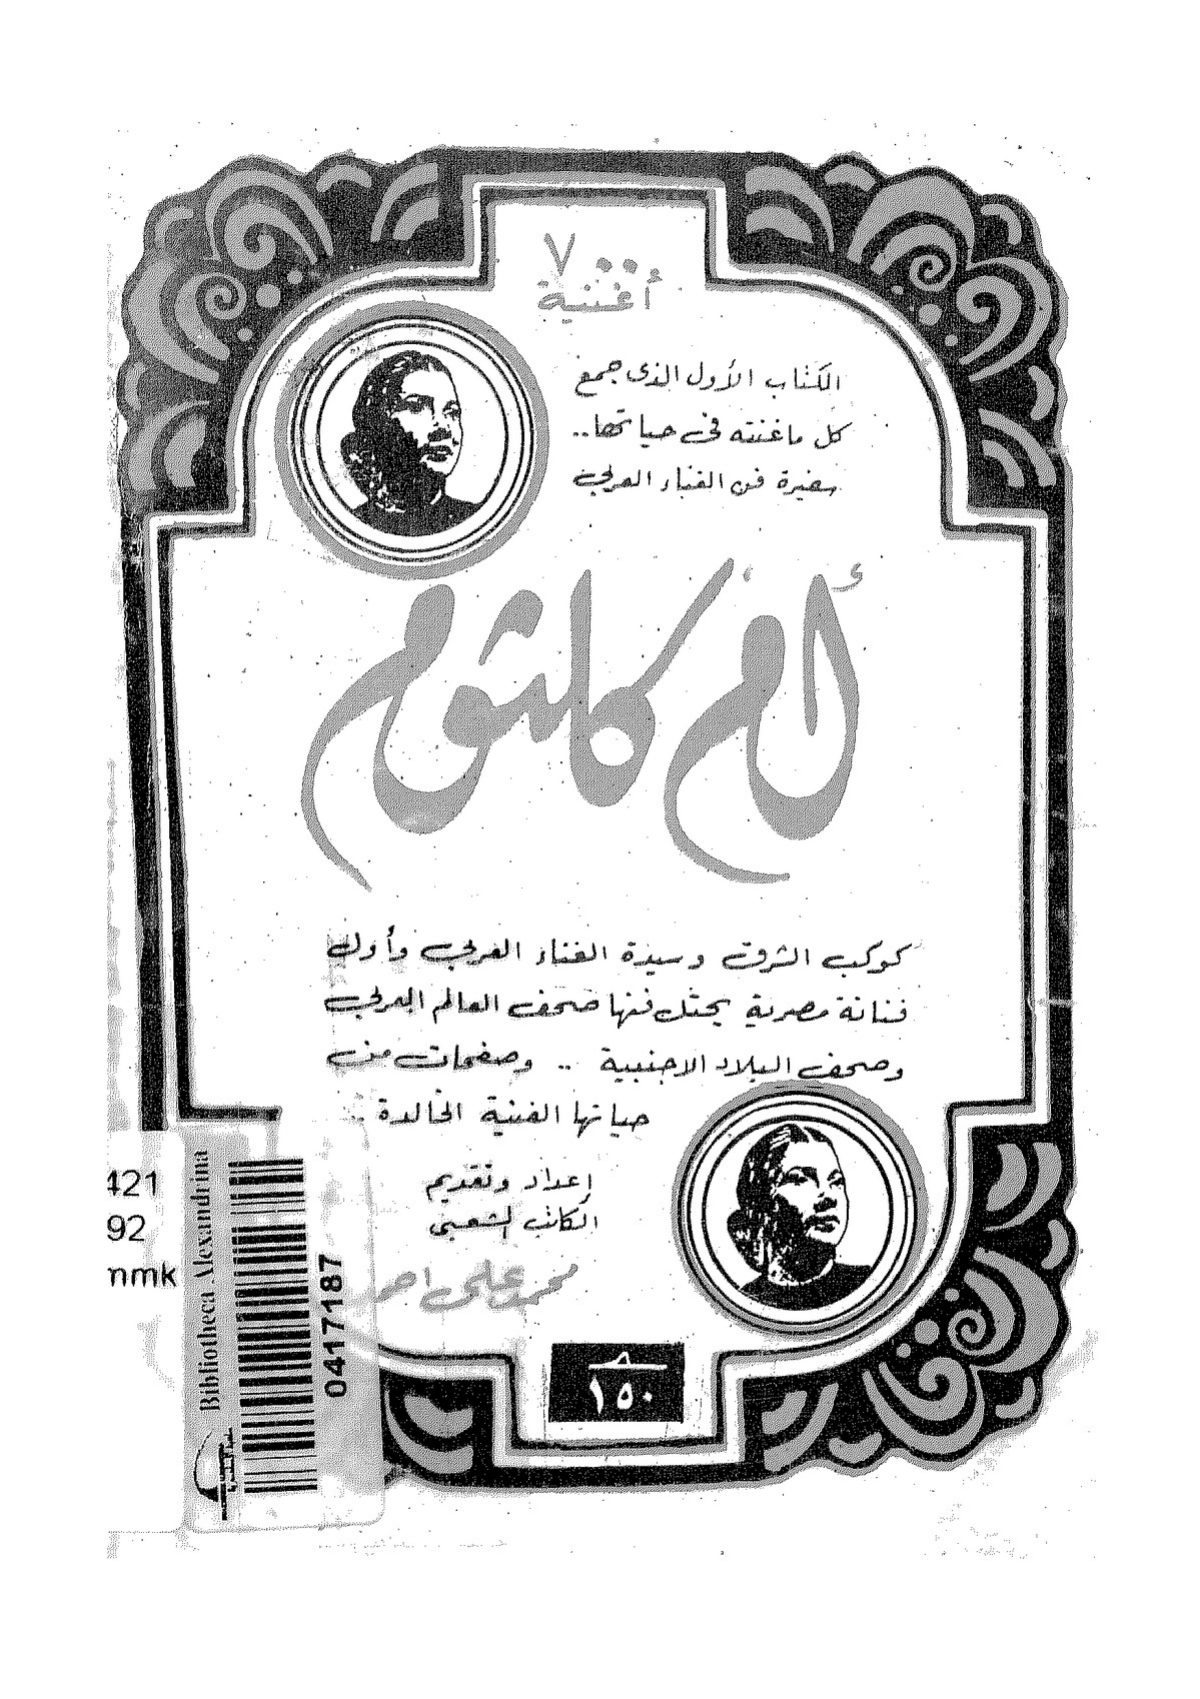 ٧٠٠
أغنية
الكتاب الأول الذى جمع
كل ما غنته فى حياتها..
سفيرة فن الغناء العربى
أم كلثوم
كوكب الشرق وسيدة الغناء العربى وأول
فنانة مصرية يحتل فنها صحف العالم العربى
وصحف البلاد الاجنبية .. وصفحات من
حياتها الفنية الخالدة ..
إعداد وتقديم
الكاتب الشعبى
محمد على احمد
١٥٠
421
92
nmk
Bibliotheca Alexandrina
0417187